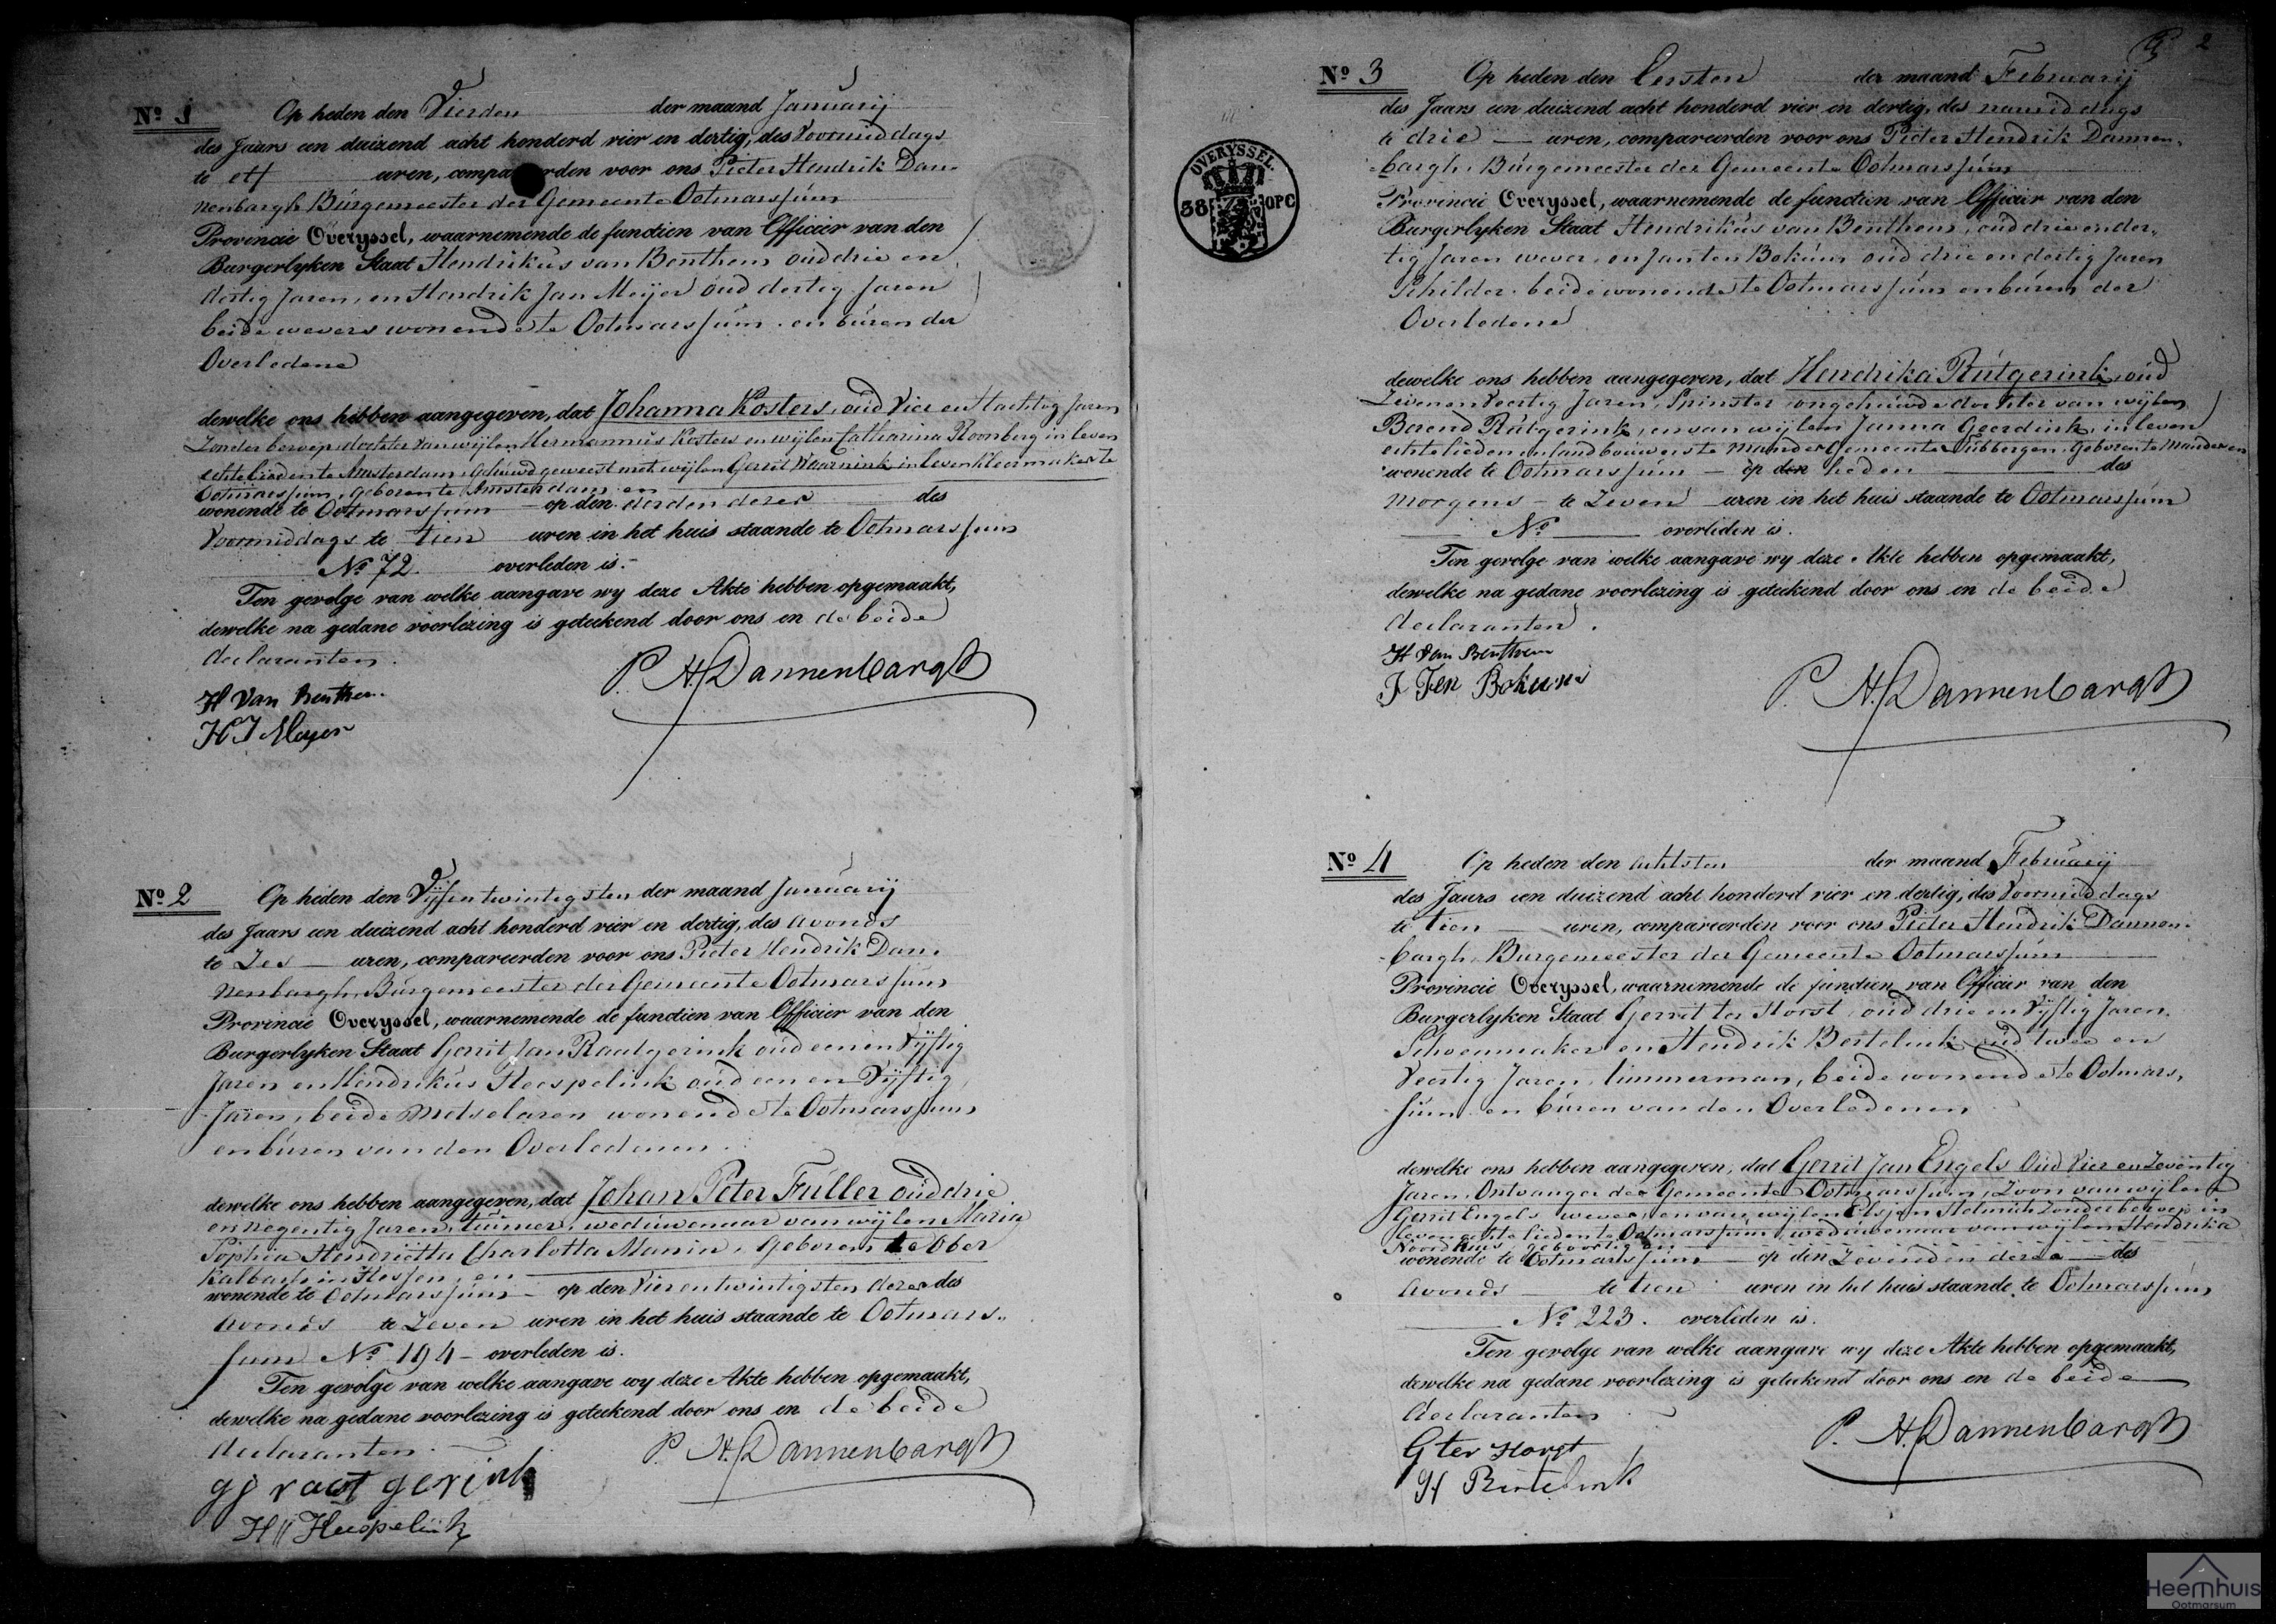 Nº 1 Op heden den Vierden der maand Januarij
des Jaars een duizend acht honderd vier en dertig, des Voormiddags
te elf uren, compa rden voor ons Pieter Hendrik Dan-
nenbargh Burgemeester der Gemeente Ootmarssum
Provincie Overyssel, waarnemende de functien van Officier van den
Burgerlyken Staat Hendrikus van Benthem oud drie en
dertig Jaren, en Hendrik Jan Meijer oud dertig Jaren
beide wevers wonende te Ootmarssum en buren der
Overledene
dewelke ons hebben aangegeven, dat Johanna Kosters, oud Vier en tachtig Jaren
Zonder beroep, dochter van wijlen Hermannus Kosters en wijlen Catharina Roonberg in leven
echtelieden te Amsterdam, gehuwd geweest met wijlen Gerrit Waarnink in leven kleermaker te
Ootmarssum, geboren te Amsterdam en
wonende te Ootmarssum op den derden dezer des
Voormiddags te tien uren in het huis staande te Ootmarssum
Nº 72. overleden is.
Ten gevolge van welke aangave wy deze Akte hebben opgemaakt,
dewelke na gedane voorlezing is geteekend door ons en de beide
declaranten.
P. H. Dannenbargh
H Van Benthem
H J Meyer
Nº 2 Op heden den Vijfentwintigsten der maand Januarij
des Jaars een duizend acht honderd vier en dertig, des avonds
te Zes uren, compareerden voor ons Pieter Hendrik Dan-
nenbargh, Burgemeester der Gemeente Ootmarssum
Provincie Overyssel, waarnemende de functien van Officier van den
Burgerlyken Staat Gerrit Jan Raatgerink oud een en Vijftig
Jaren en Hendrikus Heespelink oud een en Vijftig
Jaren, beide Metselaren wonende te Ootmarssum
en buren van den Overledenen.
dewelke ons hebben aangegeven, dat Johan Peter Fuller oud drie
en negentig Jaren, tuinier, weduwenaar van wijlen Maria
Sophia Hendriëtta Charlotta Manin, Geboren te Ober
Kalbach in Hessen, en
wonende te Ootmarssum op den Vierentwintigsten dezer des
Avonds te Zeven uren in het huis staande te Ootmars-
sum Nº 194 overleden is.
Ten gevolge van welke aangave wy deze Akte hebben opgemaakt,
dewelke na gedane voorlezing is geteekend door ons en de beide
declaranten.
P. H. Dannenbargh
gj raatgerink
H Heespelink
2
Nº 3 Op heden den Eersten der maand Februarij
des Jaars een duizend acht honderd vier en dertig, des namiddags
te drie uren, compareerden voor ons Pieter Hendrik Dannen-
bargh, Burgemeester der Gemeente Ootmarssum
Provincie Overyssel, waarnemende de functien van Officier van den
Burgerlyken Staat Hendrikus van Benthem, oud drie en der-
tig Jaren wever, en Jan ten Bokum oud drie en dertig Jaren
Schilder, beide wonende te Ootmarssum en buren der
Overledene
OVERYSSEL.
38 OPC
dewelke ons hebben aangegeven, dat Hendrika Rutgerink, oud
Zeven en Veertig Jaren, Spinster ongehuwde dochter van wijlen
Barend Rutgerink, en van wijlen Janna Geerdink, in leven
echtelieden en landbouwers te Mander Gemeente Tubbergen. Geboren te Mander en
wonende te Ootmarssum op den heden des
morgens te Zeven uren in het huis staande te Ootmarssum
Nº overleden is.
Ten gevolge van welke aangave wy deze Akte hebben opgemaakt,
dewelke na gedane voorlezing is geteekend door ons en de beide
declaranten.
H Van Benthem
J Ten Bokum
P. H. Dannenbargh
Nº 4 Op heden den achtsten der maand Februarij
des Jaars een duizend acht honderd vier en dertig, des Voormiddags
te tien uren, compareerden voor ons Pieter Hendrik Dannen-
bargh, Burgemeester der Gemeente Ootmarssum
Provincie Overyssel, waarnemende de functien van Officier van den
Burgerlyken Staat Gerrit ter Horst, oud drie en Vijftig Jaren,
Schoenmaker en Hendrik Bertelink oud twee en
Veertig Jaren, timmerman, beide wonende te Ootmars-
sum en buren van den Overledenen
dewelke ons hebben aangegeven, dat Gerrit Jan Engels Oud Vier en Zeventig
Jaren, Ontvanger der Gemeente Ootmarssum, Zoon van wijlen
Gerrit Engels wever, en van wijlen Elsjen Zonder beroep in
leven echtelieden te Ootmarssum, weduwenaar van wijlen Hendrika
Noordhuis, geboortig en
wonende te Ootmarssum op den Zevenden dezer des
Avonds te tien uren in het huis staande te Ootmarssum
Nº 223. overleden is.
Ten gevolge van welke aangave wy deze Akte hebben opgemaakt,
dewelke na gedane voorlezing is geteekend door ons en de beide
declaranten
P. H. Dannenbargh
G ter Horst
H Bertelink
Heemhuis
Ootmarsum